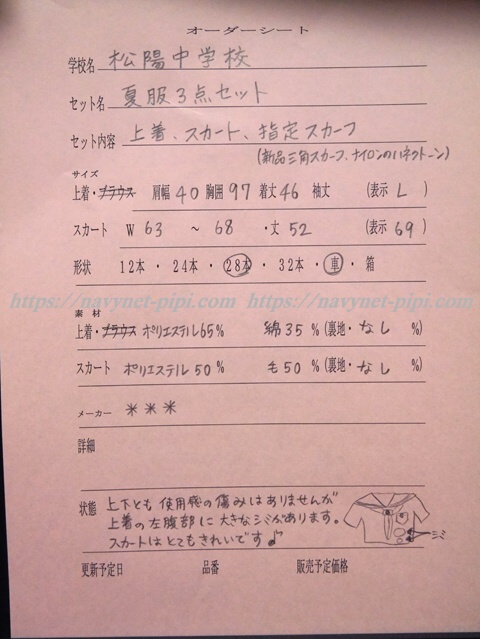 オーダーシート
学校名 松陽中学校
セット名 夏服3点セット
セット内容 上着、スカート、指定スカーフ
(新品三角スカーフ、ナイロンのハネクトーン)
サイズ
上着・ブラウス 肩幅 40 胸囲 97 着丈 46 袖丈 (表示 L )
スカート W 63 ～ 68 ・丈 52 (表示 69 )
形状 12本・24本・28本・32本・車・箱
https://navynet-pipi.com https://navynet-pipi.com
素材
上着・ブラウス ポリエステル65% 綿 35 % (裏地・なし %)
スカート ポリエステル 50 % 毛 50 % (裏地・なし %)
メーカー ＊＊＊
詳細
状態 上下とも使用後の傷みはありませんが
上着の左腹部に大きなシミがあります。
スカートはとてもきれいです♪
シミ
更新予定日 品番 販売予定価格